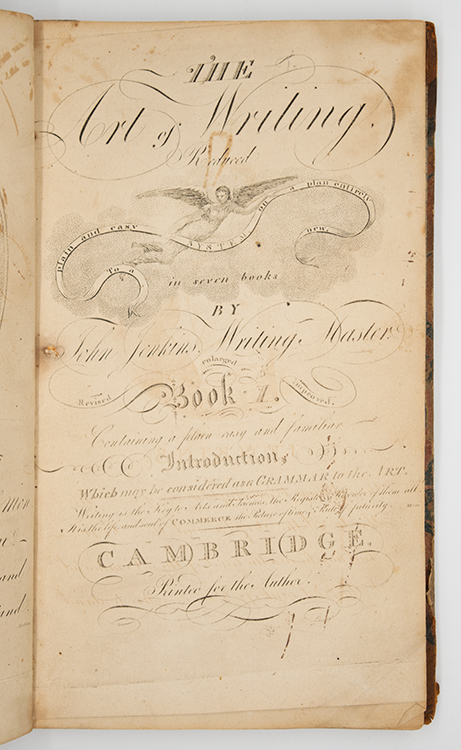 THE
Art of Writing,
Reduced
To a plain and easy SYSTEM on a plan entirely new,
in seven books
BY
John Jenkins, Writing Master.
Revised enlarged improved.
Book 1.
Containing a plain easy and familiar
Introduction,
Which may be considered as a GRAMMAR to the ART.
Writing is the Key to Arts and Sciences, the Register & Recorder of them all
It is the life and soul of COMMERCE the Picture of time, & Rule of futurity.
CAMBRIDGE.
Printed for the Author.